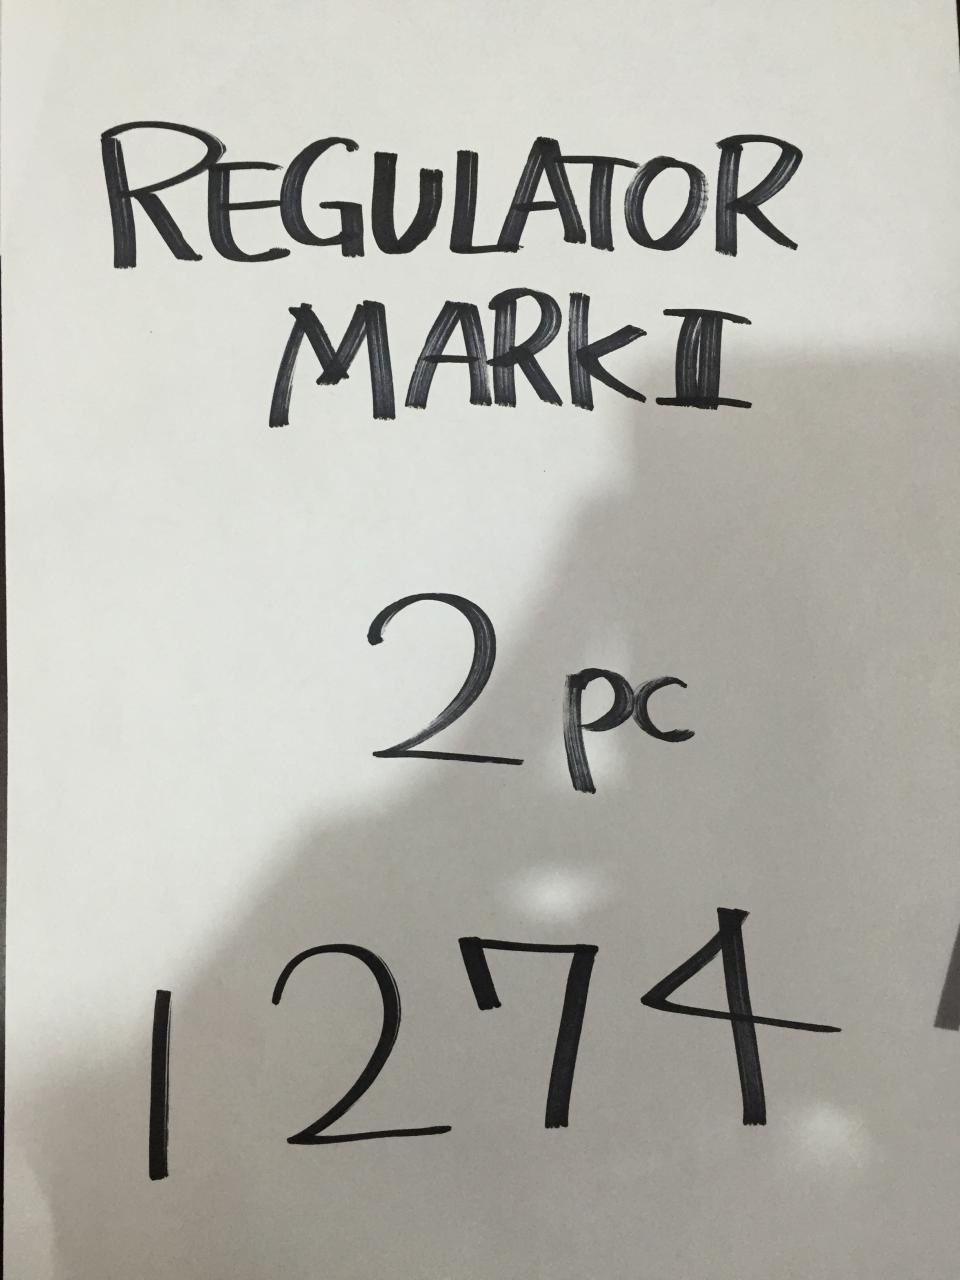 REGULATOR
MARK II
2 pc
1274